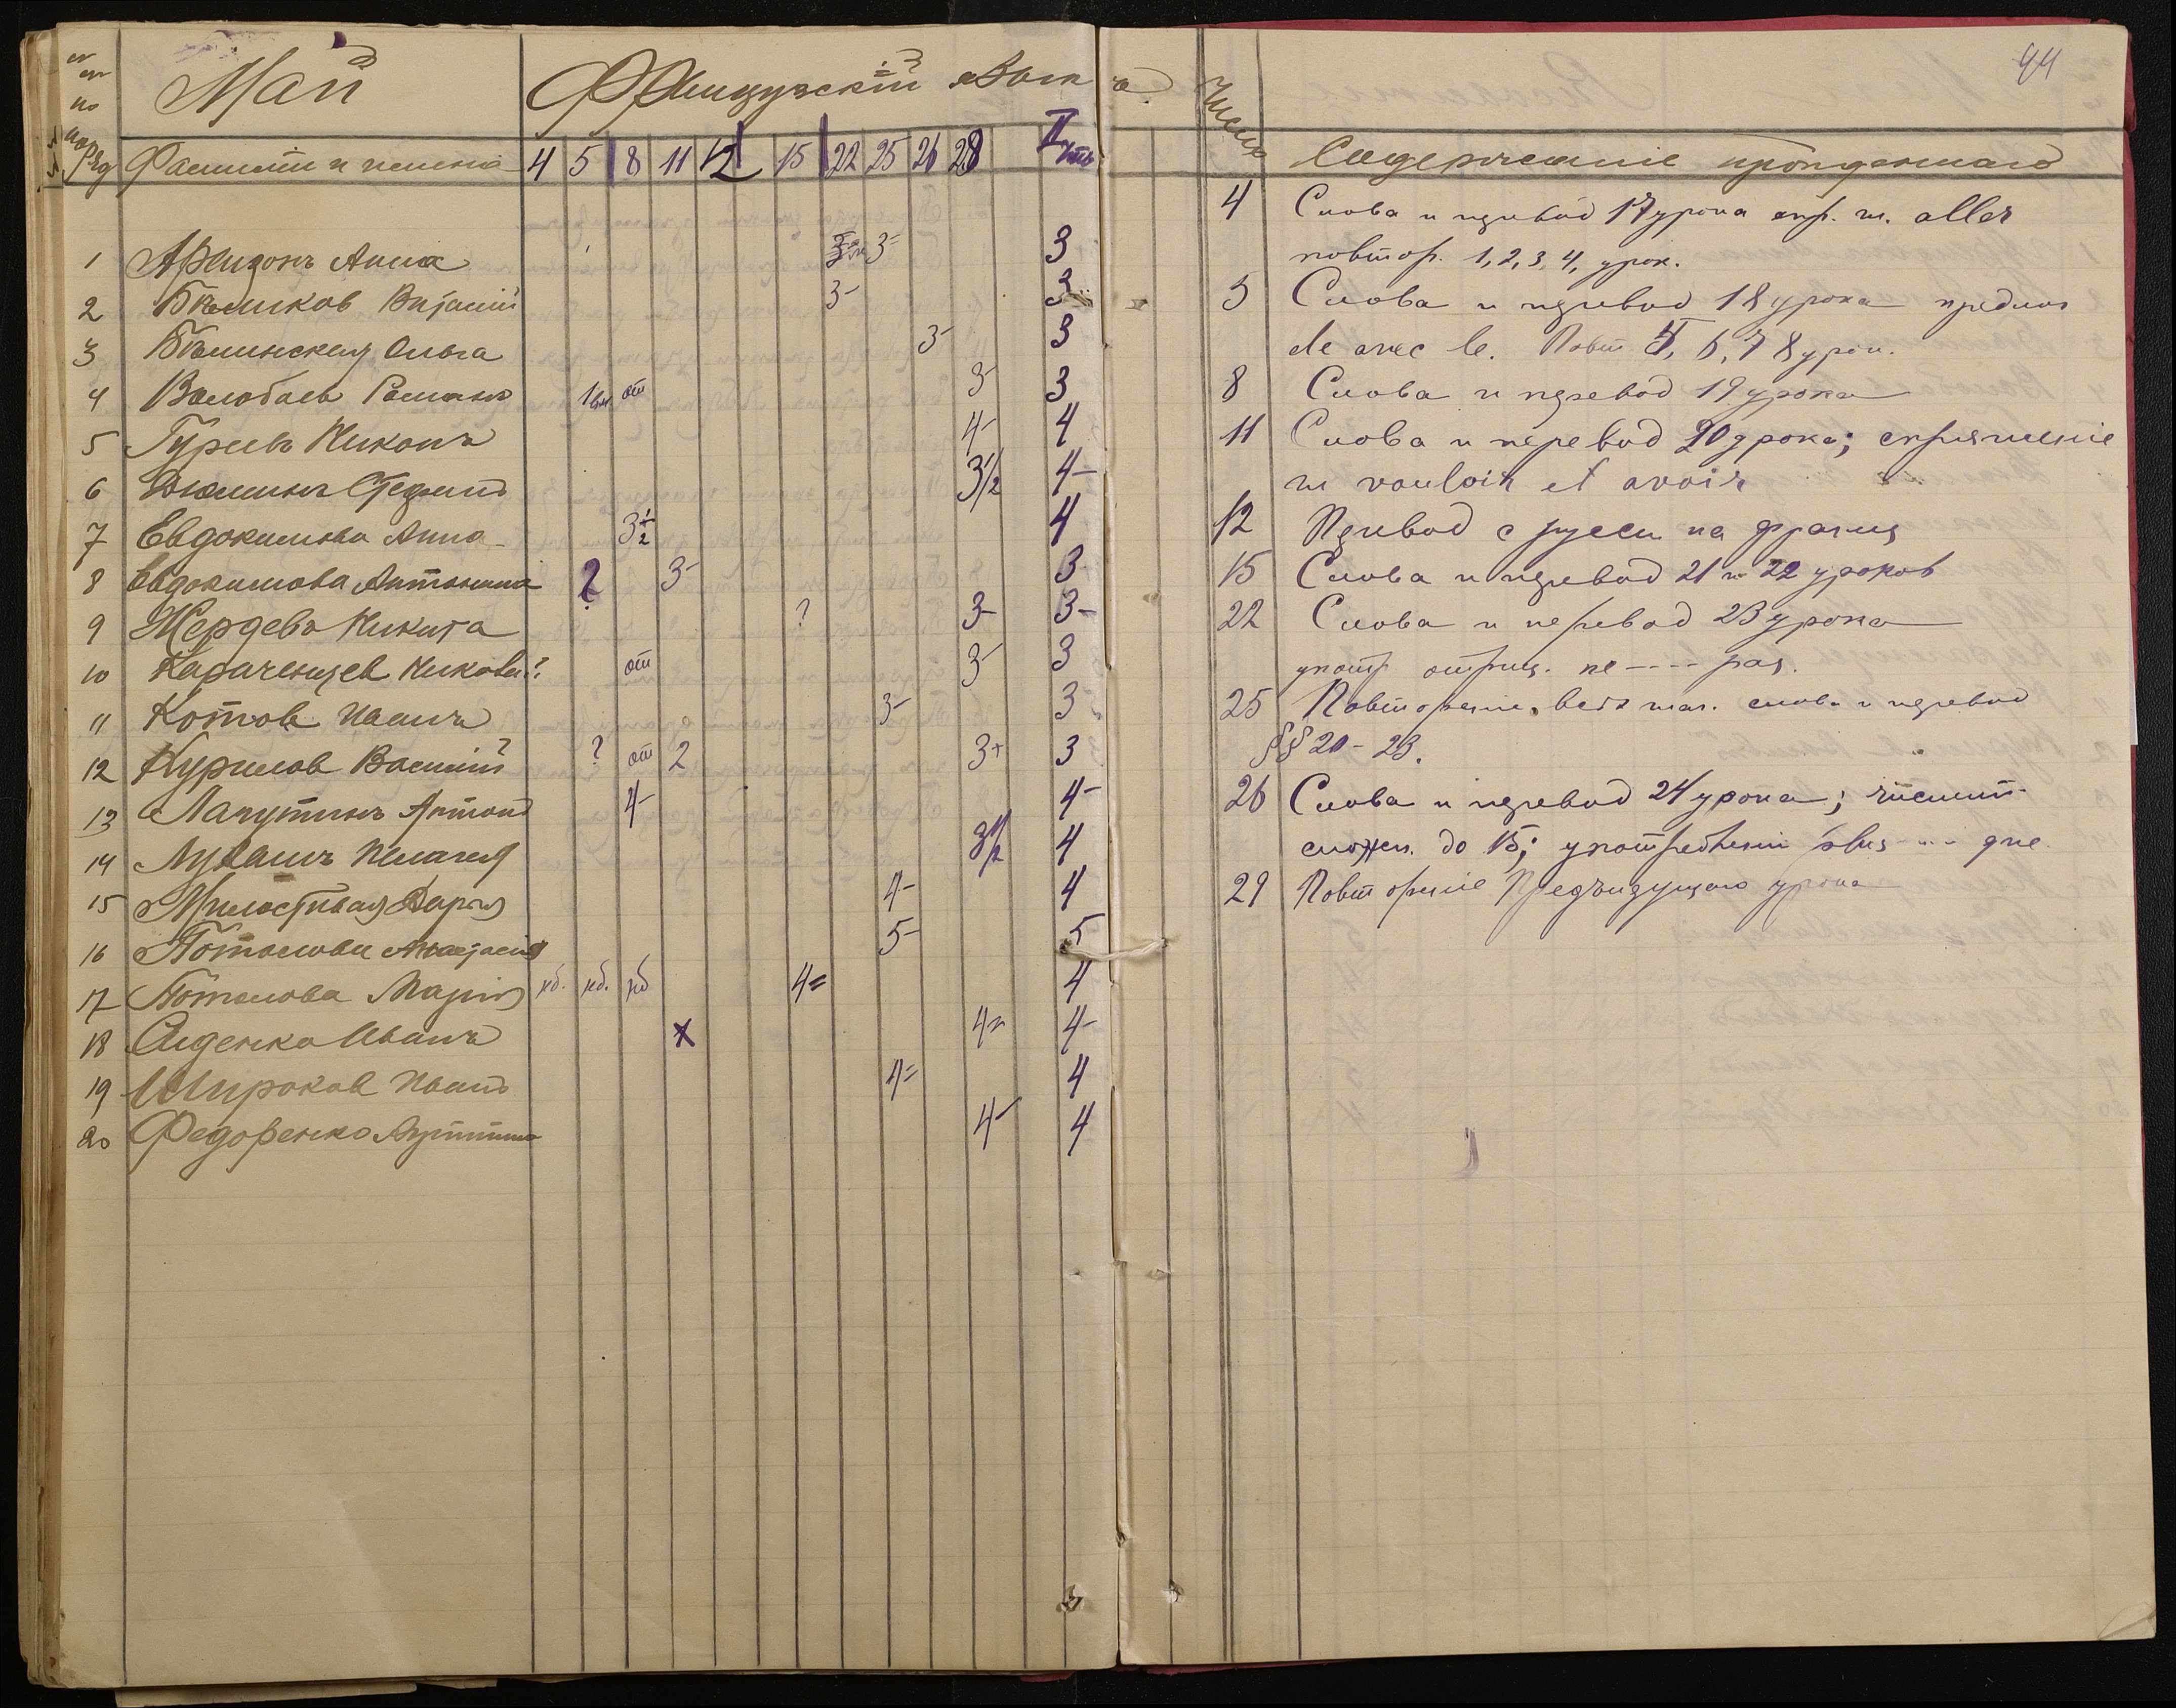 Май Французскій языкъ.
Фамиліи и имена 4 5 8 11 12 15 22 25 26 28 II
1 Арендонъ Анна 3- 3
2 Бѣликов 3- 3
3 Бѣлинская Ольга 3- 3
4 Романъ от 3- 3
5 Гуріевъ Никонъ 4- 4
6 3½ 4-
7 Евдокимова Анна 3½ 4
8 Евдокимова Антонина 2 3- 3
9 Жердевъ Никита ? 3- 3-
10 Караченцев от 3- 3
11 Котов Иванъ 3- 3
12 Курилов Василій ? от 2 3+ 3
13 Лапутинъ Антонъ 4- 4-
14 Лукашъ Пелагея 3½ 4
15 Милостивая Дарья 4- 4
16 Потапова Анастасія 5- 5
17 Потапова Марія нб. нб. нб 4= 4
18 Сиденко Иванъ х 4- 4-
19 Широков Иванъ 4= 4
20 Федоренко 4- 4
94
Число Содержаніе пройденнаго
4 Слова и перевод 17 урока спр. гл. aller
повтор. 1, 2, 3, 4, урок.
5 Слова и перевод 18 урока предлог
de avec le. Повт 5, 6, 7 8 урок.
8 Слова и перевод 19 урока
11 Слова и перевод 20 урока; спряженіе
гл vouloir et avoir
12 Перевод с русск на француз
15 Слова и перевод 21 и 22 уроков
22 Слова и перевод 23 урока
употр отриц. ne ---- pas.
25 Повтореніе слова и перевод
§§ 20 - 23.
26 Слова и перевод 24 урока; числит
сложен. до 15; употребленіи plus --- que
29 Повтореніе Предъидущаго урока